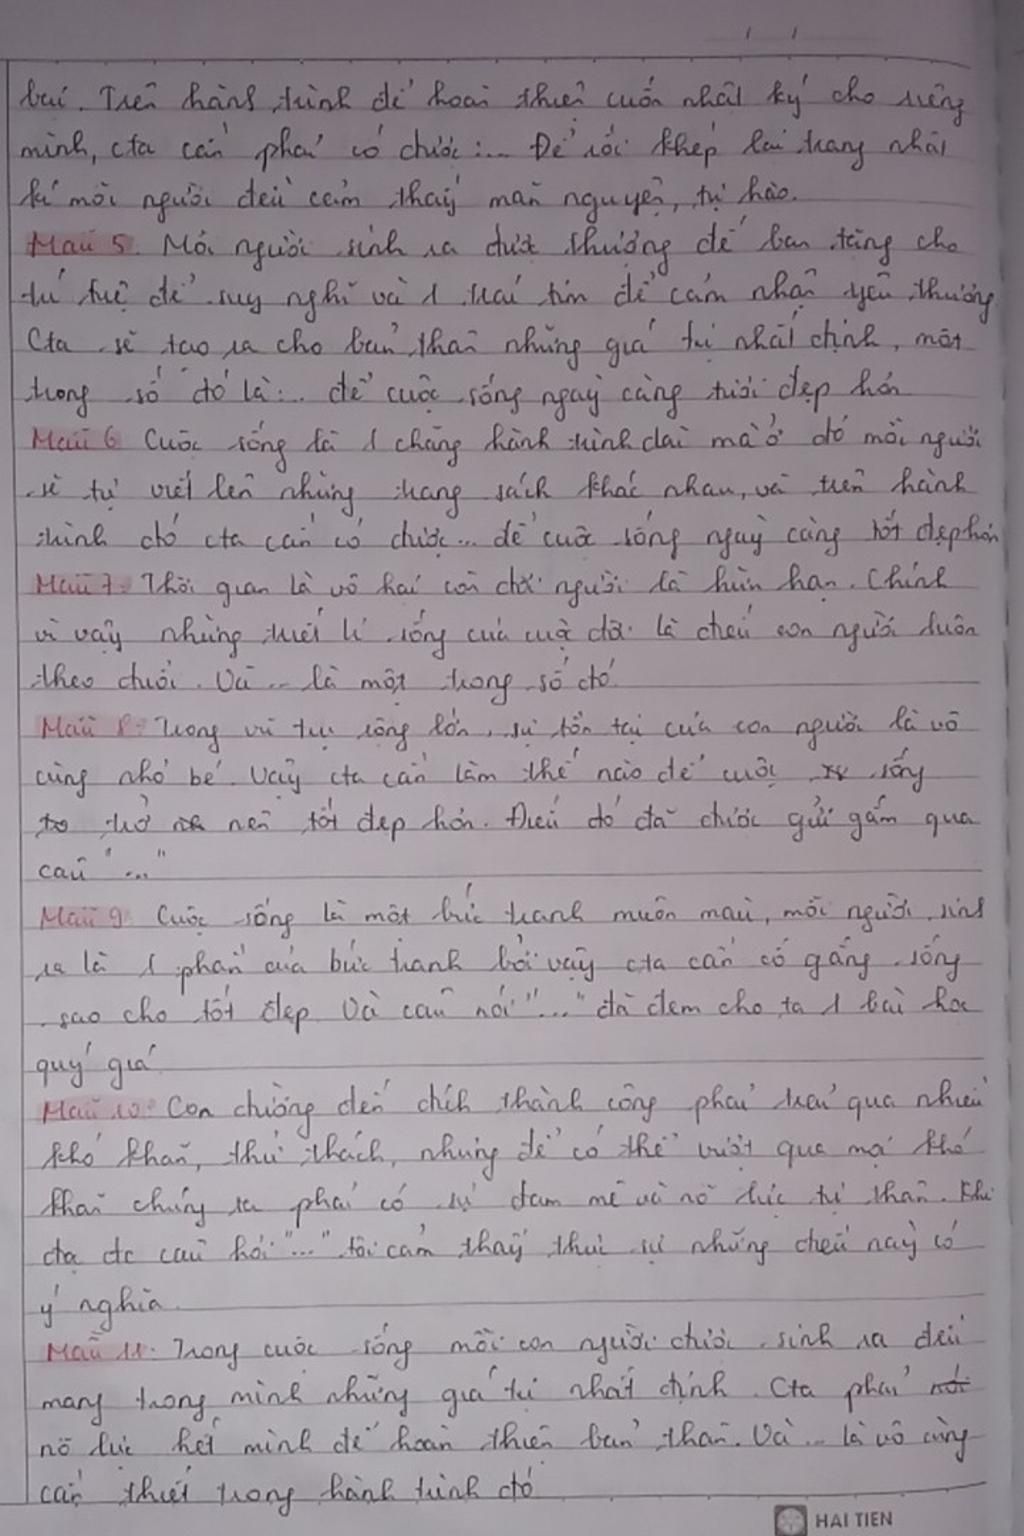 bui. Trên hành trình để hoàn thiện cuốn nhật ký cho riêng
mình, cta cần phải có được ... Để rồi khép lại trang nhật
kí mỗi người đều cảm thấy mãn nguyện, tự hào.
Mẫu 5. Mỗi người sinh ra được thượng đế ban tặng cho
trí tuệ để suy nghĩ và 1 trái tim để cảm nhận yêu thương.
Cta sẽ tạo ra cho bản thân những giá trị nhất định, một
trong số đó là:.. để cuộc sống ngày càng tươi đẹp hơn
Mẫu 6 Cuộc sống là 1 chặng hành trình dài mà ở đó mỗi người
sẽ tự viết lên những trang sách khác nhau, và trên hành
trình đó cta cần có được... để cuộc sống ngày càng tốt đẹp hơn
Mẫu 7. Thời gian là vô hại còn đời người là hữu hạn. Chính
vì vậy những triết lí sống của cuộc đời là điều con người luôn
theo đuổi. Và ... là một trong số đó
Mẫu 8. Trong vũ trụ rộng lớn, sự tồn tại của con người là vô
cùng nhỏ bé. Vậy cta cần làm thế nào để cuộc sống
trở nên tốt đẹp hơn. Điều đó đã được gửi gắm qua
câu "..."
Mẫu 9. Cuộc sống là một bức tranh muôn màu, mỗi người sinh
ra là 1 phần của bức tranh bởi vậy cta cần cố gắng sống
sao cho tốt đẹp. Và câu nói "..." đã đem cho ta 1 bài học
quý giá
Mẫu 10: Con đường đến đích thành công phải trải qua nhiều
khó khăn, thử thách, nhưng để có thể vượt qua mọi khó
khăn chúng ta phải có sự đam mê và nỗ lực tự thân. Khi
đọc đc câu hỏi "..." tôi cảm thấy thực sự những điều này có
ý nghĩa
Mẫu 11. Trong cuộc sống mỗi con người được sinh ra đều
mang trong mình những giá trị nhất định. Cta phải
nỗ lực hết mình để hoàn thiện bản thân. Và ... là vô cùng
cần thiết trong hành trình đó
HAI TIEN